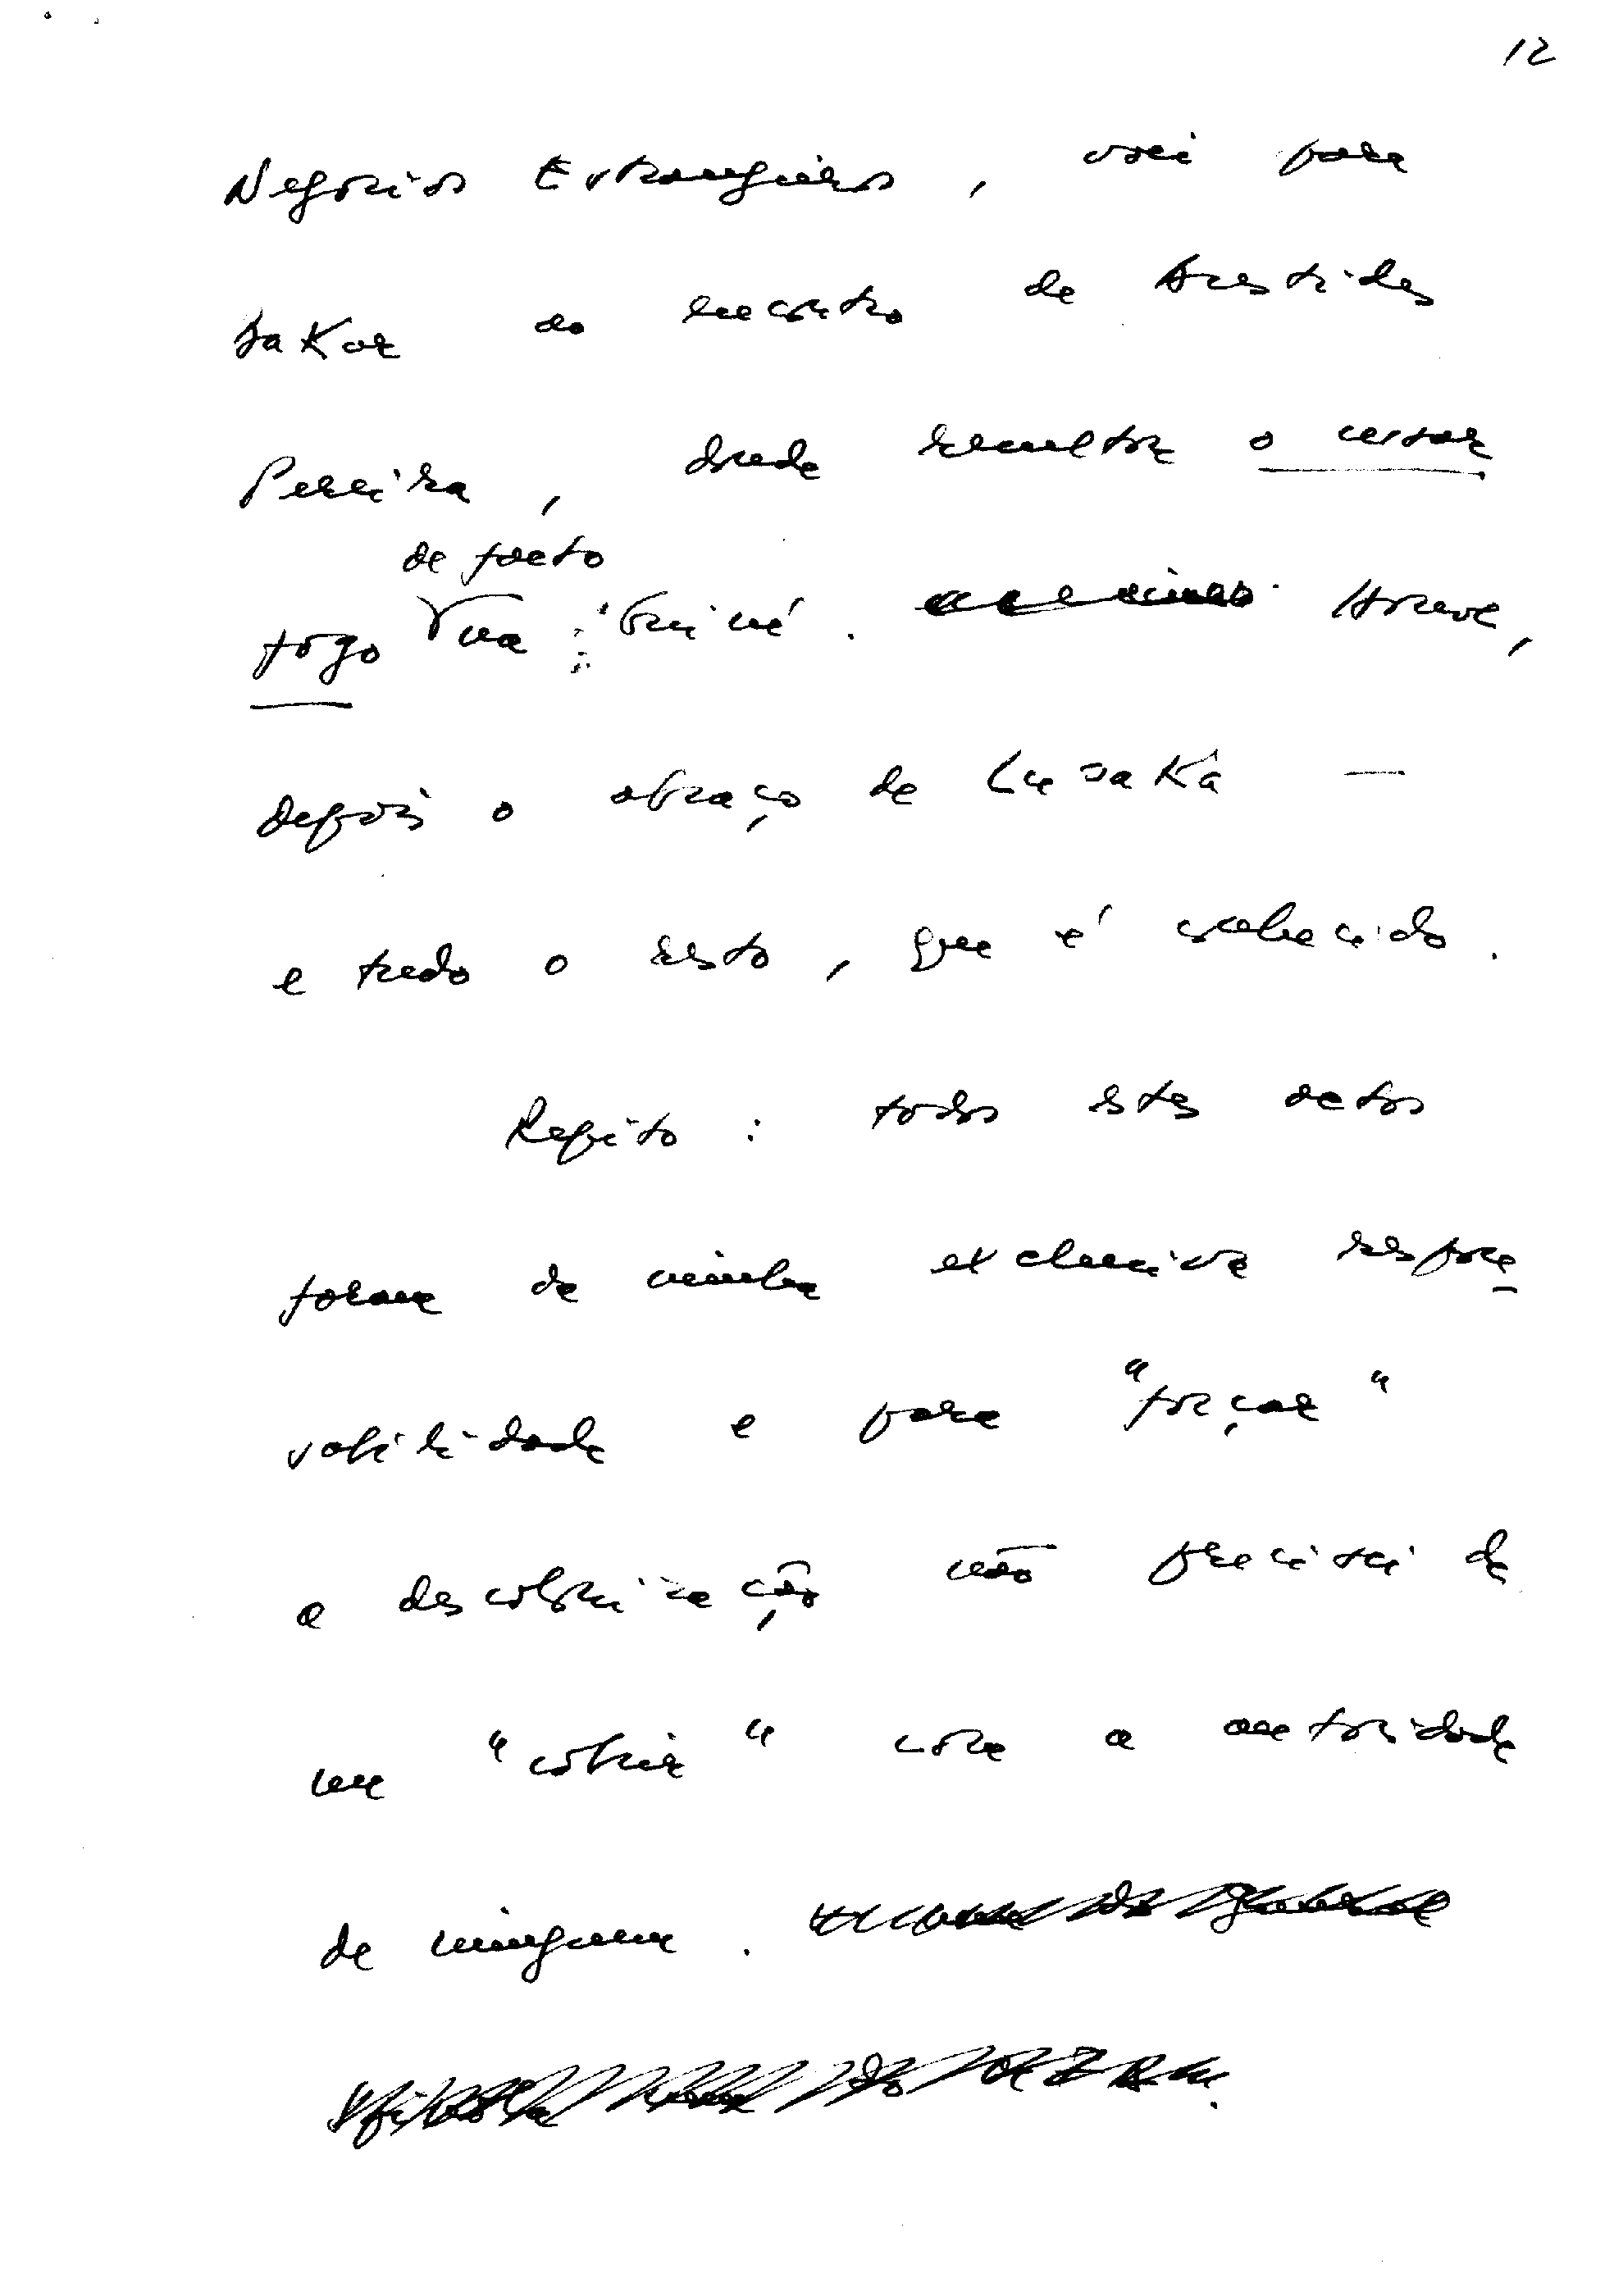 12
Negócios Estrangeiros, voei para
Dakar ao encontro de Aristides
Pereira, donde resultou o cessar
de facto
fogo na Guiné. Houve,
depois o abraço de Lusaka —
e tudo o resto, que é conhecido.
Repito: todos estes actos
foram de minha exclusiva respon-
sabilidade e para "forçar"
a descolonização não precisei de
me "cobrir" com a autoridade
de ninguem.